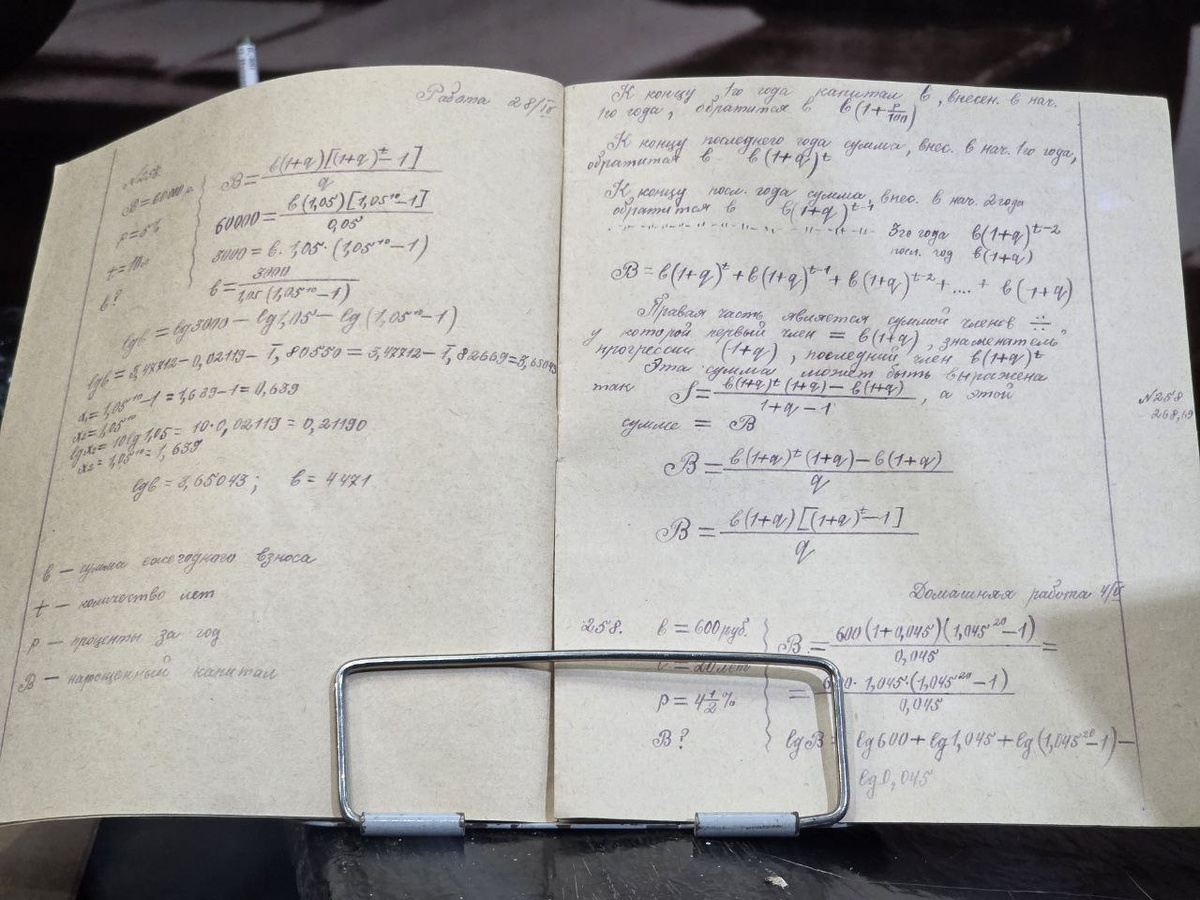 Работа 28/III
B = в(1+q)[(1+q)^t − 1] / q
B = 60000
60000 = в(1,05)[1,05¹⁰ − 1] / 0,05
p = 5%
3000 = в · 1,05 · (1,05¹⁰ − 1)
t = 10
в = 3000 / 1,05(1,05¹⁰ − 1)
в?
lg в = lg 3000 − lg 1,05 − lg (1,05¹⁰ − 1)
lg в = 3,47712 − 0,02119 − 1̄,80550 = 3,47712 − 1̄,82669 = 3,65043
x₁ = 1,05¹⁰ − 1 = 1,639 − 1 = 0,639
x₂ = 1,05¹⁰
lg x₂ = 10 lg 1,05 = 10 · 0,02119 = 0,21190
x₂ = 1,05¹⁰ = 1,639
lg в = 3,65043; в = 4471
в — сумма ежегодного взноса
t — количество лет
p — проценты за год
B — наращенный капитал
К концу 1го года капитал в, внесен. в нач.
1го года, обратится в в(1 + p/100)
К концу последнего года сумма, внес. в нач. 1го года,
обратится в в(1+q)^t
К концу посл. года сумма, внес. в нач. 2 года
обратится в в(1+q)^t−1
3го года в(1+q)^t−2
посл. год в(1+q)
B = в(1+q)^t + в(1+q)^t−1 + в(1+q)^t−2 + .... + в(1+q)
Правая часть является суммой членов ÷÷,
у которой первый член = в(1+q), знаменатель
прогрессии (1+q), последний член в(1+q)^t
Эта сумма может быть выражена
так S = в(1+q)^t (1+q) − в(1+q) / 1+q−1, а этой
сумме = B
B = в(1+q)^t (1+q) − в(1+q) / q
B = в(1+q)[(1+q)^t − 1] / q
№258
268,69
Домашняя работа
258. в = 600 руб.
B = 600(1+0,045)(1,045²⁰ − 1) / 0,045 =
= 20 лет
= 600 · 1,045 · (1,045²⁰ − 1) / 0,045
p = 4 1/2 %
B?
lg B = lg 600 + lg 1,045 + lg (1,045²⁰ − 1) −
lg 0,045